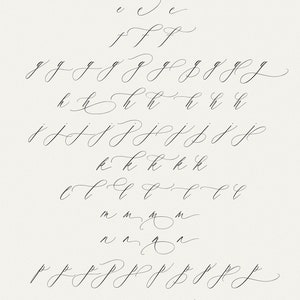 e e e
f f f
g g g g g g g g g g
h h h h h h h h
j j j j j j j j j j
k k k k k
l l l l l l l
m m m m
n n n n
p p p p p p p p p p